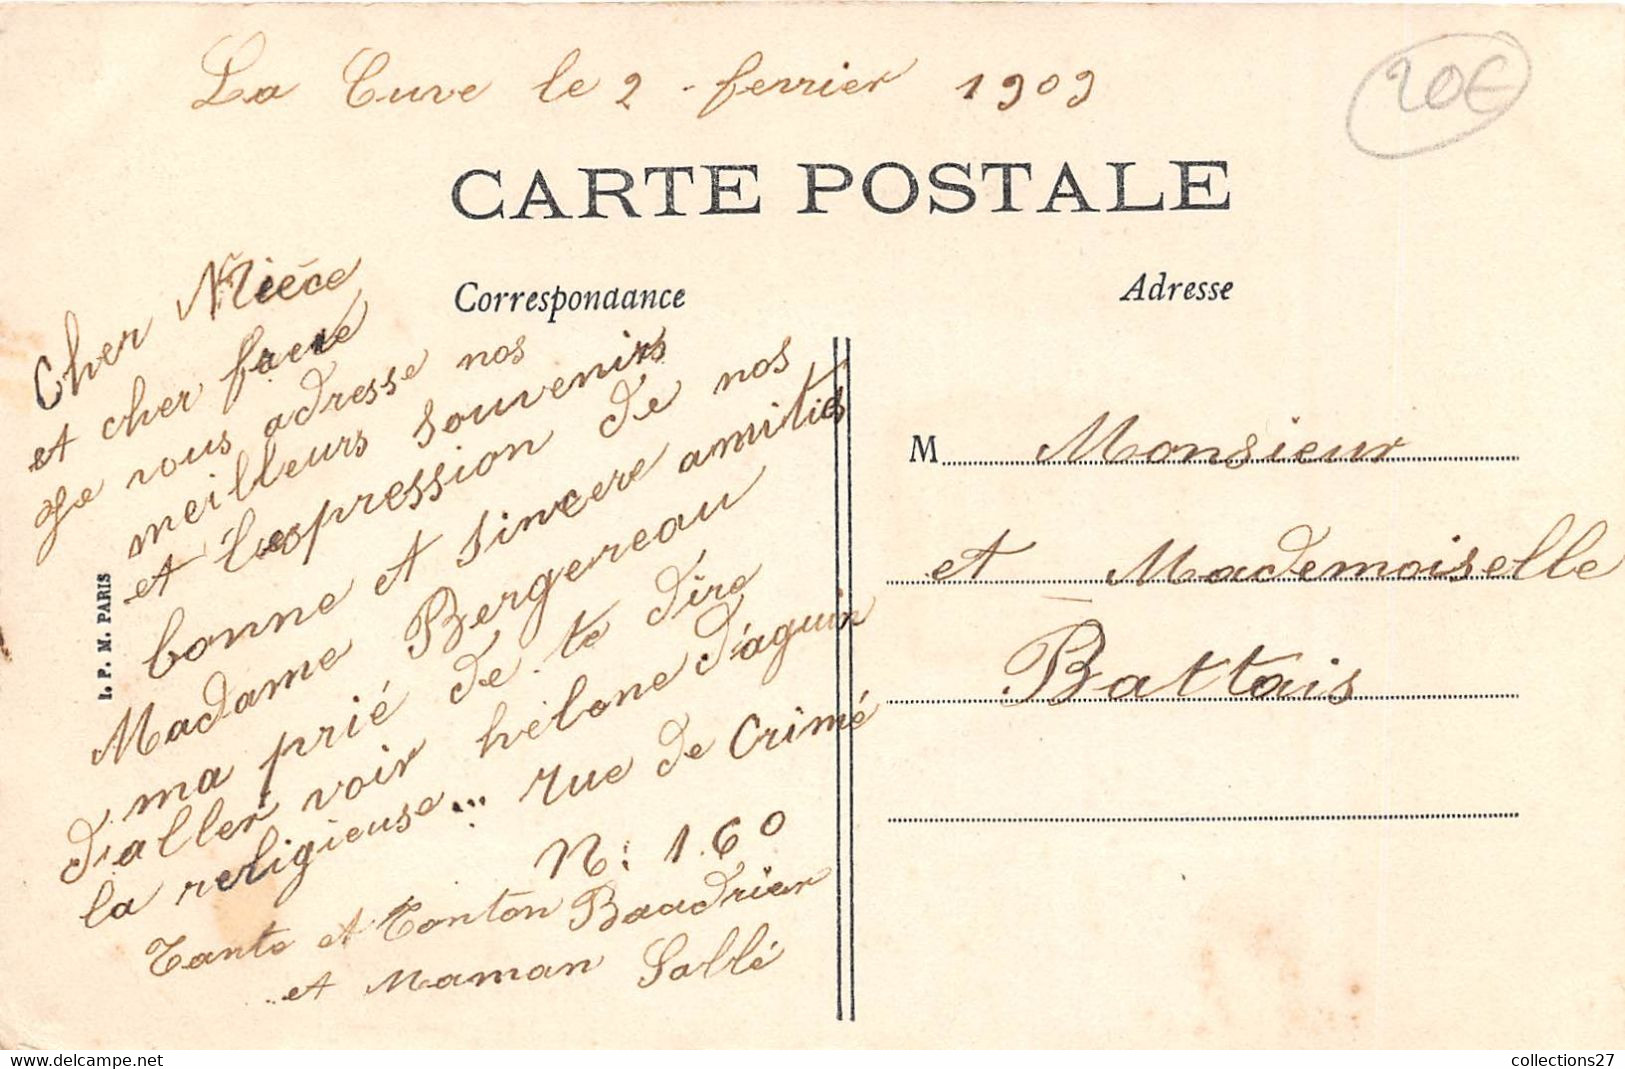 La Cuve le 2 - fevrier 1909
20€
CARTE POSTALE
Correspondance
Adresse
Cher Nièce
et cher
Je vous adresse nos
meilleurs souvenirs
et l'expression de nos
bonne et sincere amitiés
Madame Bergereau
ma prié de te dire
d'aller voir hélene d'aquin
la religieuse... rue de Crimé
N: 160
Tante et Tonton Baudrier
et Maman Sallé
I. P. M. PARIS
M Monsieur
et Mademoiselle
Battais
collections27